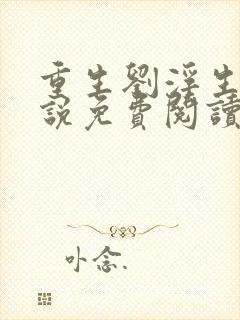 重生劉淫生
說免費閱讀
卟念.